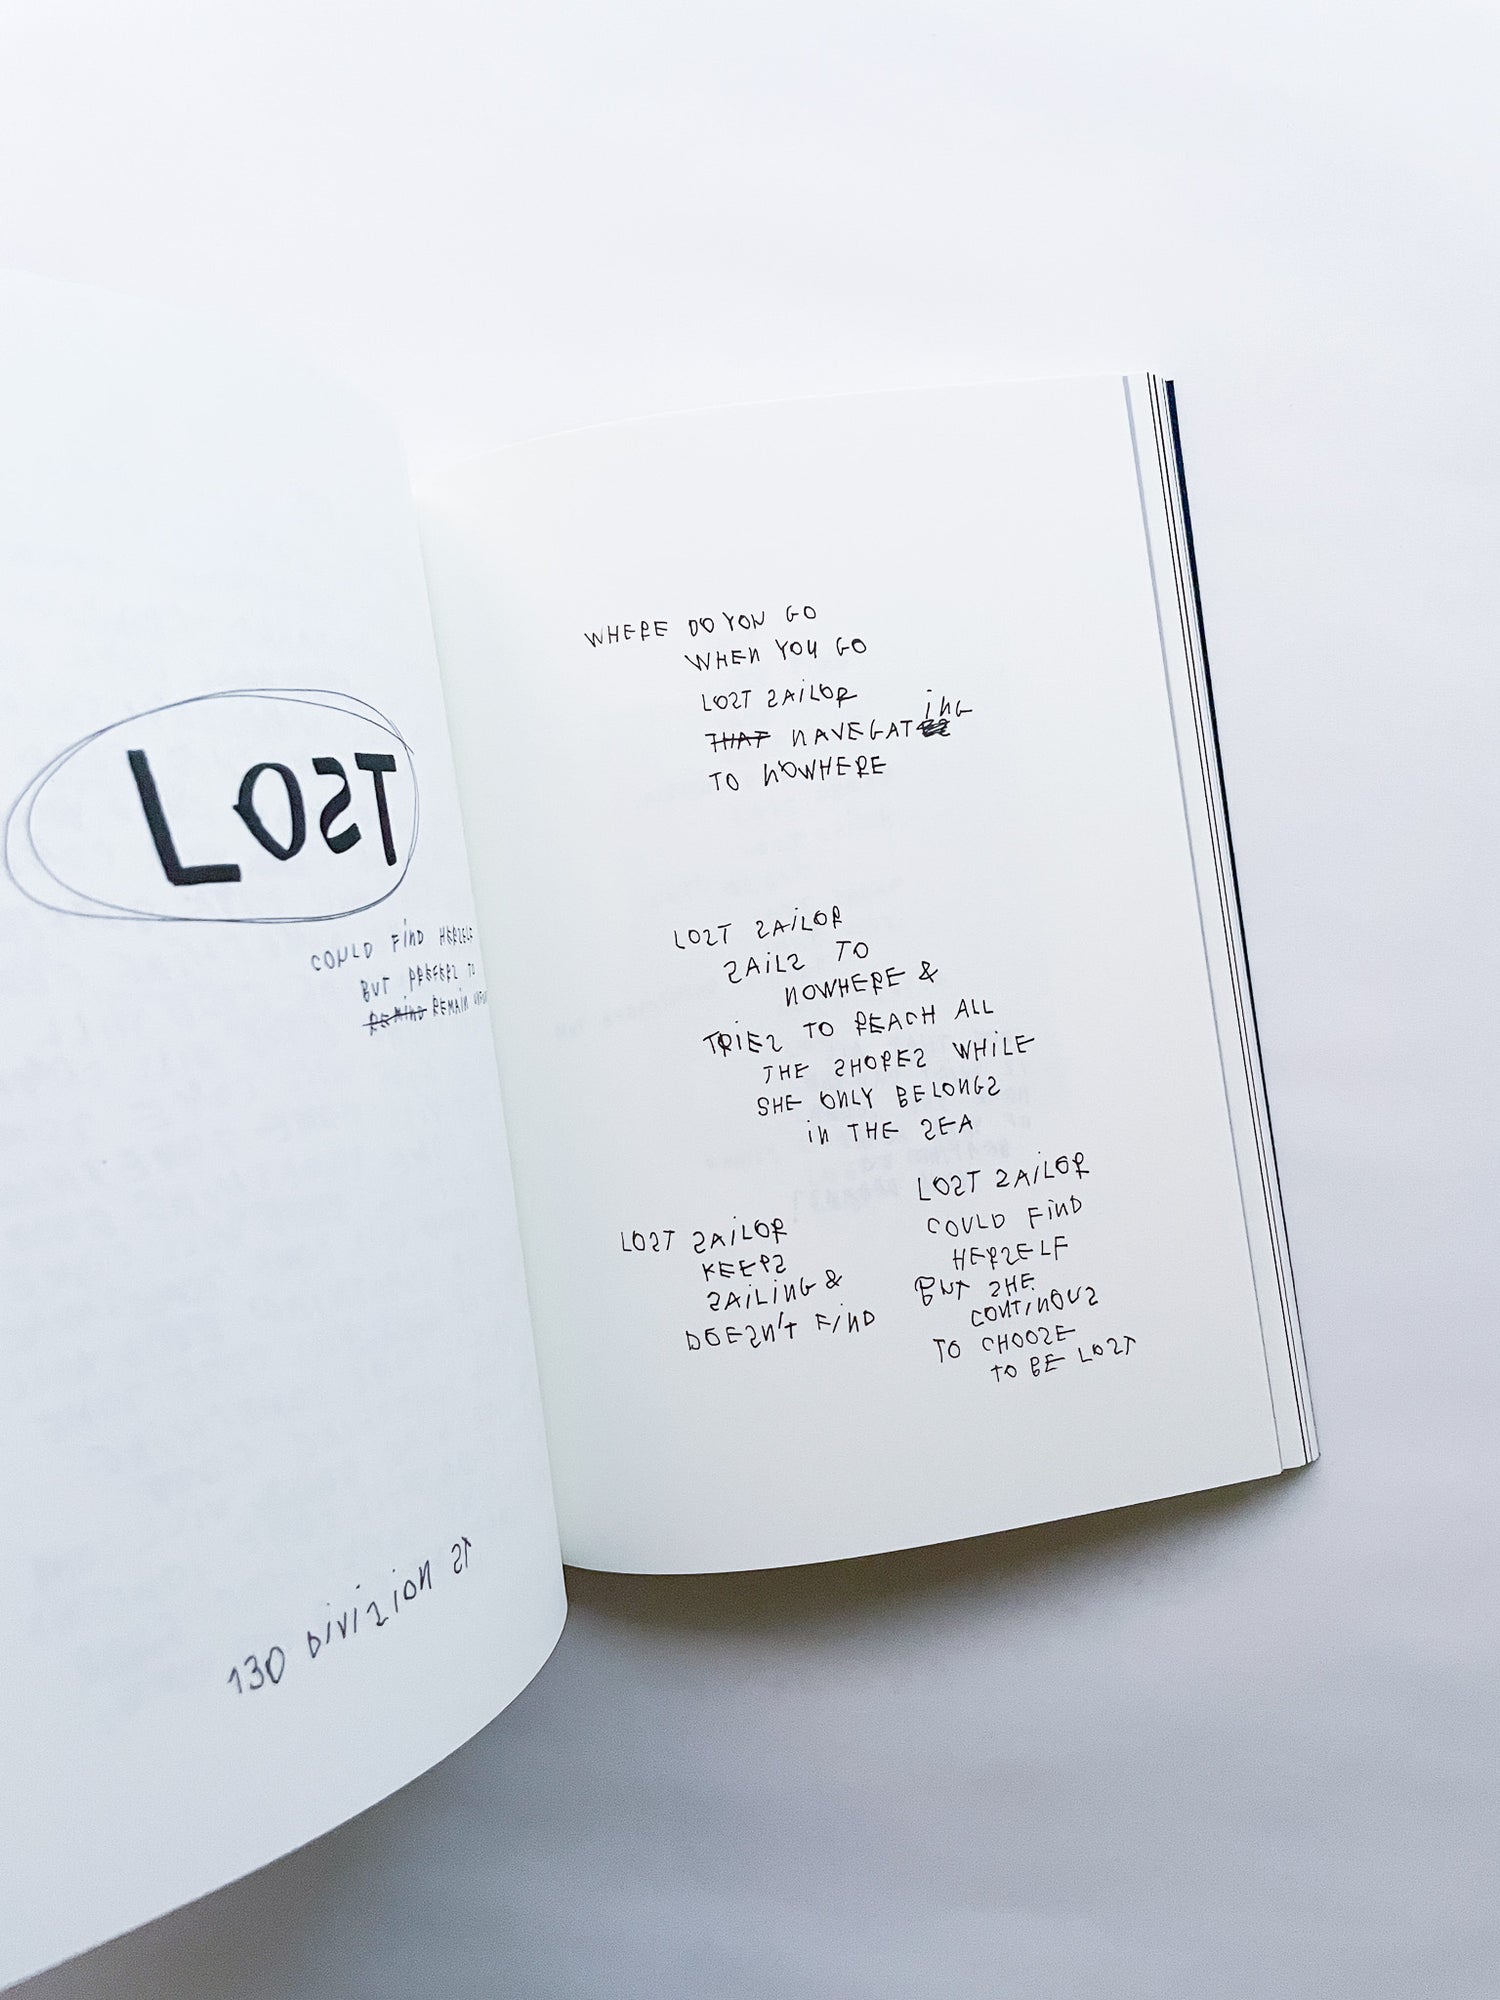 LOST
COULD FIND HERSELF
BUT PREFERS TO
REMIND REMAIN
130 DIVISION ST
WHERE DO YOU GO
WHEN YOU GO
LOST SAILOR
THAT NAVEGATING
TO NOWHERE
LOST SAILOR
SAILS TO
NOWHERE &
TRIES TO REACH ALL
THE SHORES WHILE
SHE ONLY BELONGS
IN THE SEA
LOST SAILOR
KEEPS
SAILING &
DOESN'T FIND
LOST SAILOR
COULD FIND
HERSELF
BUT SHE
CONTINOUS
TO CHOOSE
TO BE LOST